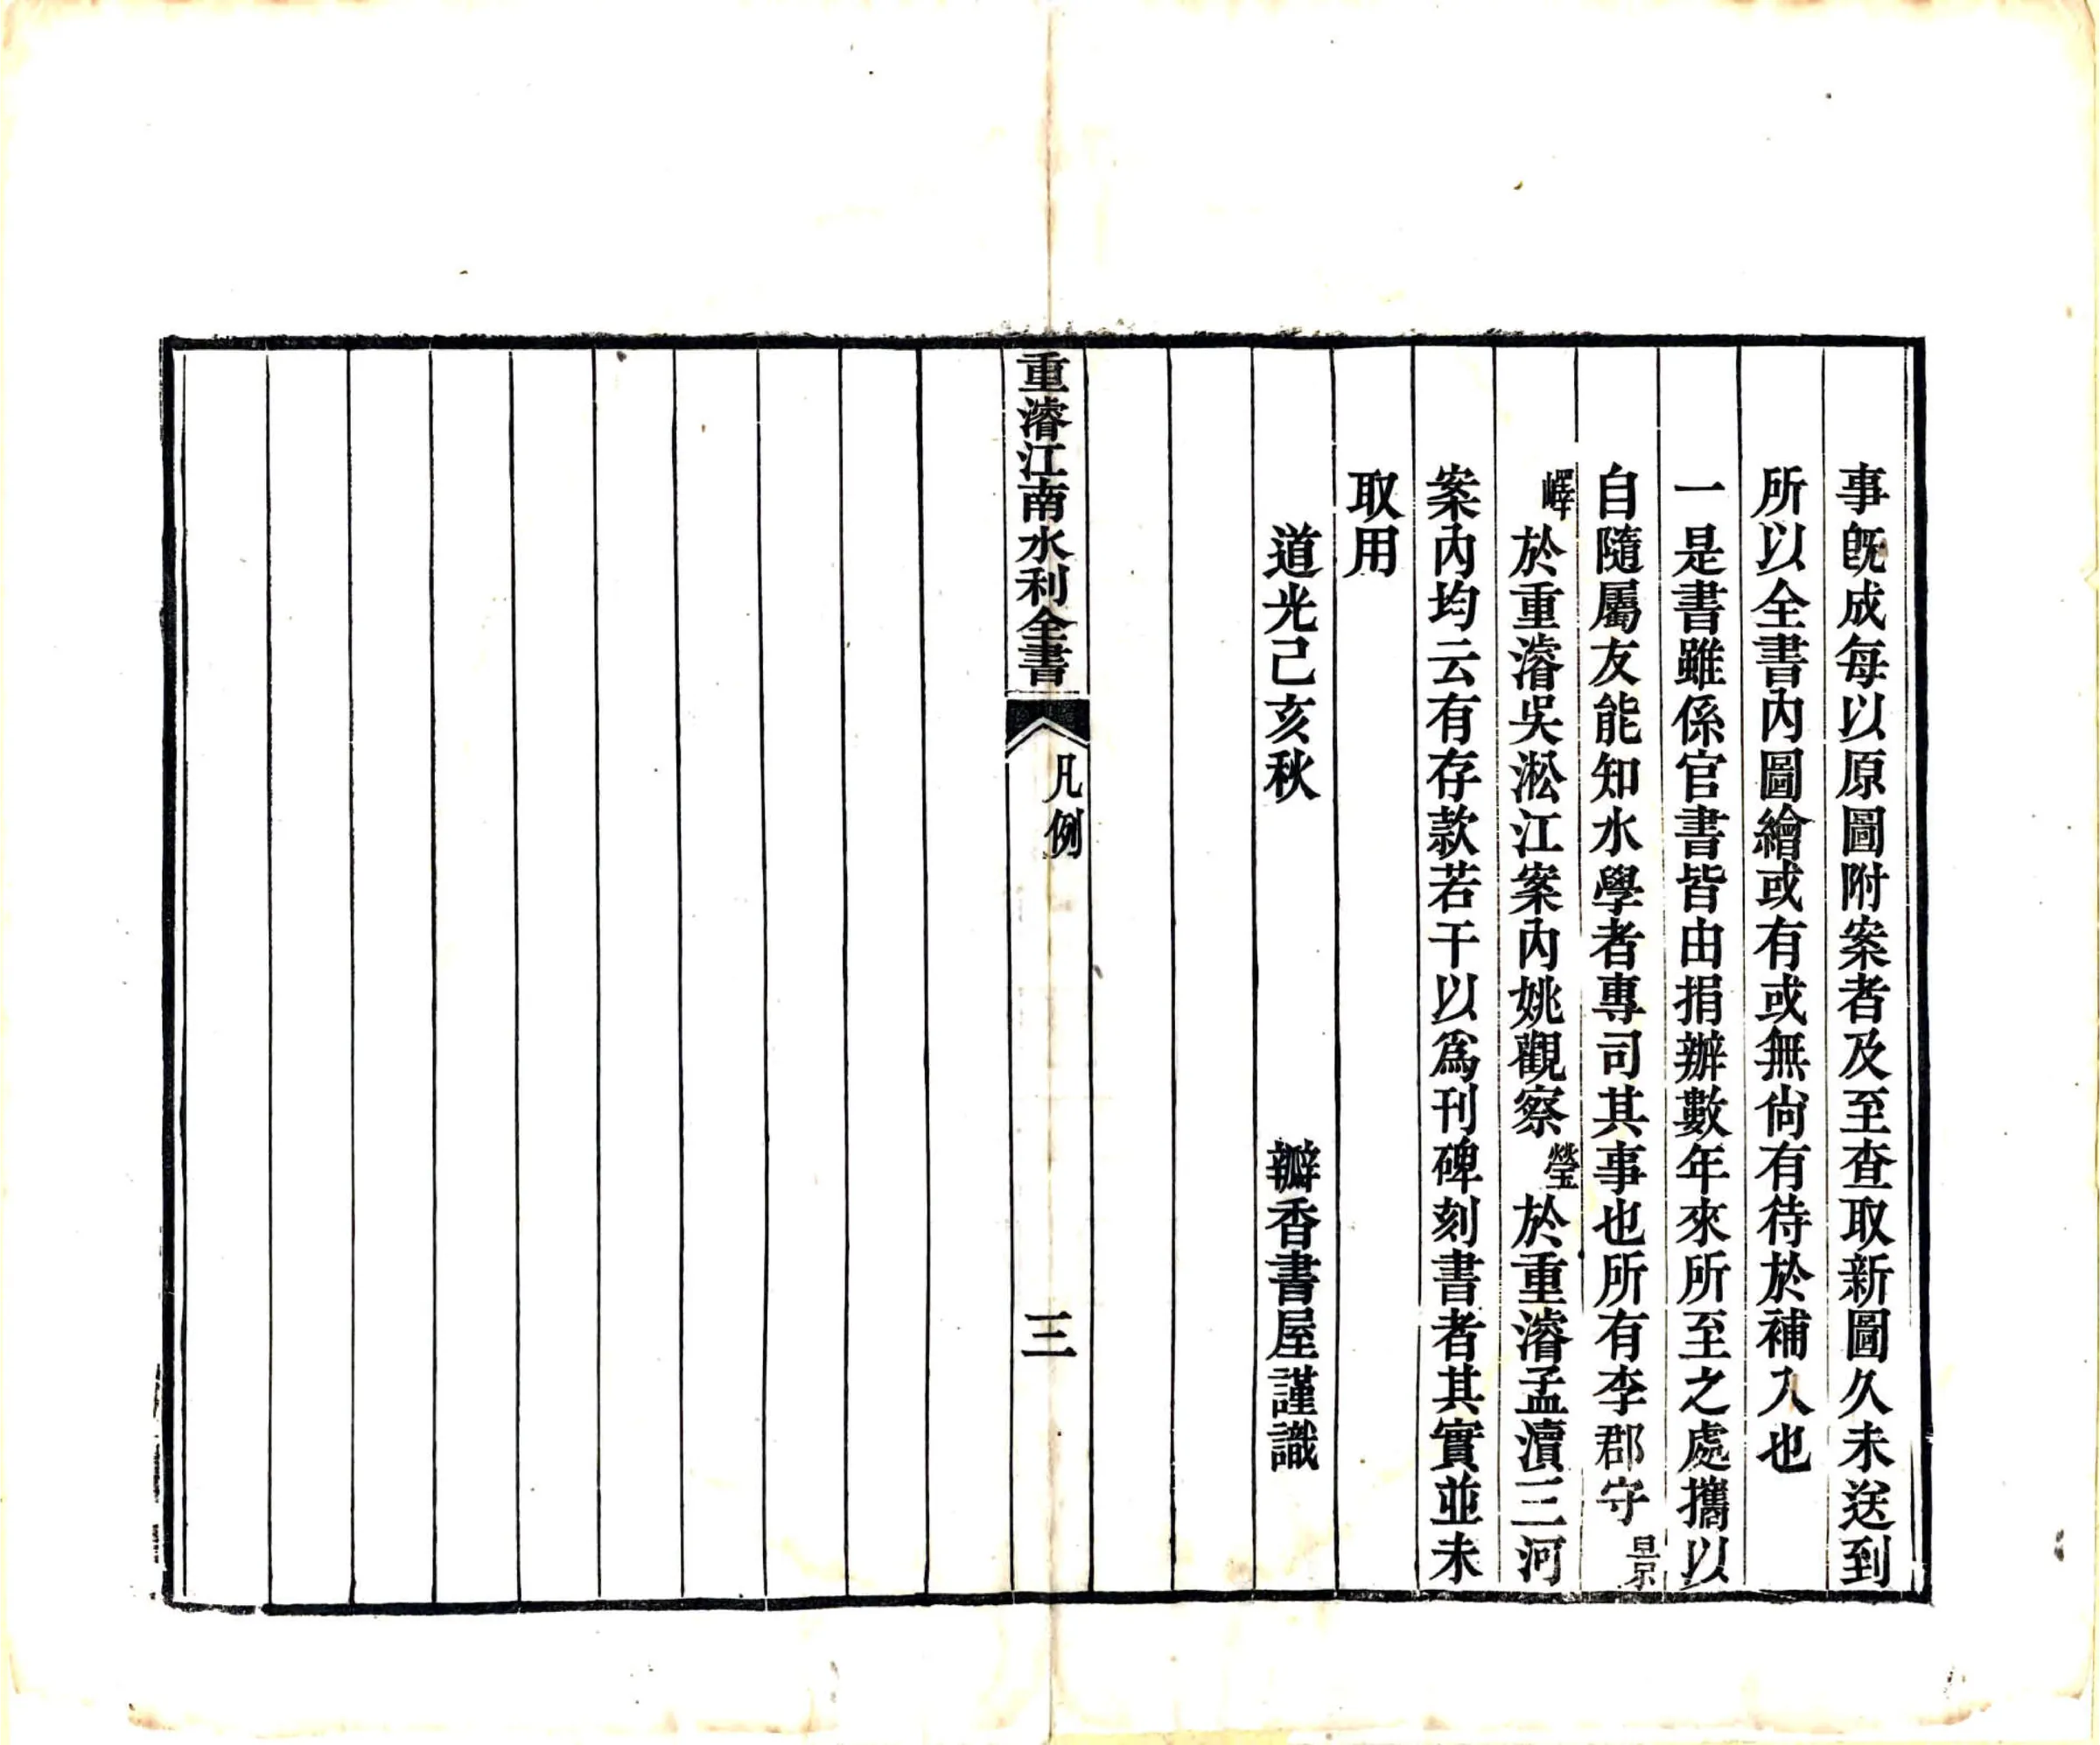 事旣成每以原圖附案者及至查取新圖久未送到
所以全書內圖繪或有或無尙有待於補入也
一是書雖係官書皆由捐辦數年來所至之處攜以
自隨屬友能知水學者專司其事也所有李郡守景
嶧於重濬吳淞江案內姚觀察瑩於重濬孟瀆三河
案內均云有存款若干以爲刊碑刻書者其實並未
取用
道光己亥秋 瓣香書屋謹識
重濬江南水利全書 凡例 三